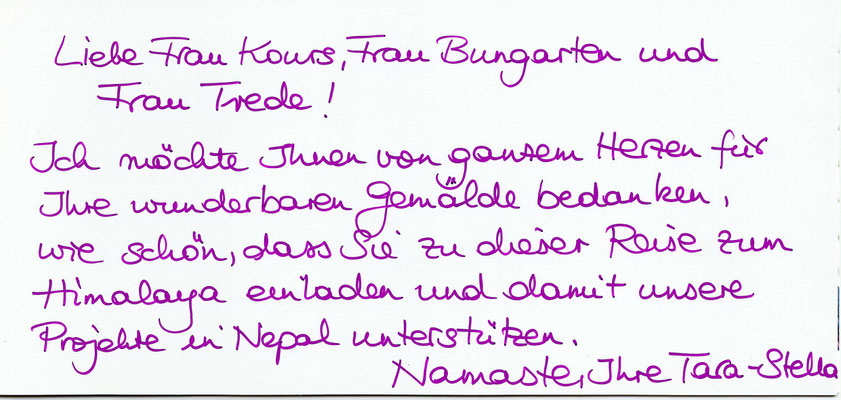 Liebe Frau Kours, Frau Bungarten und
Frau Trede!
Ich möchte Ihnen von ganzem Herzen für
Ihre wunderbaren Gemälde bedanken,
wie schön, dass Sie zu dieser Reise zum
Himalaya einladen und damit unsere
Projekte in Nepal unterstützen.
Namaste, Ihre Tara-Stella